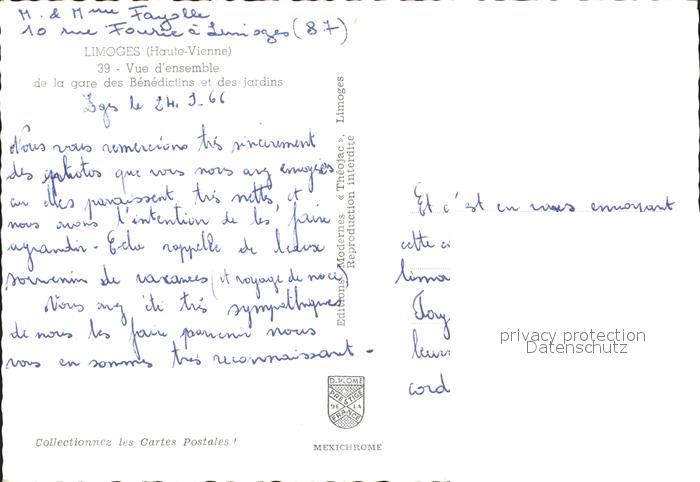 M. & Mme Fayolle
10 rue Fourie à Limoges (87)
LIMOGES (Haute-Vienne)
39 - Vue d'ensemble
de la gare des Bénédictins et des jardins
Lges le 24. 9. 66
Nous vous remercions très sincèrement
des photos que vous nous avez envoyées
car elles paraissent très nettes, et
nous avons l'intention de les faire
agrandir - Cela rappelle de beaux
souvenirs de vacances (et voyage de noce)
Vous avez été très sympathiques
de nous les faire parvenir nous
vous en sommes très reconnaissant -
Collectionnez les Cartes Postales !
Editions Modernes « Théojac », Limoges
Reproduction interdite
DIPLOME
PRESTIGE
DE LA
FRANCE
MEXICHROME
Et c'est en vous envoyant
cette
limo
leurs
cord
privacy protection
Datenschutz